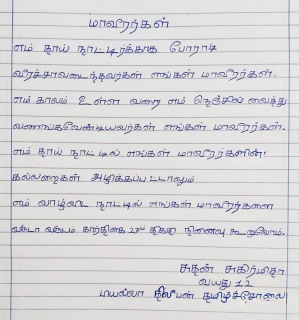 மாவீரர்கள்
எம் தாய் நாட்டிற்காக போராடி
வீரச்சாவடைந்தவர்கள் எங்கள் மாவீரர்கள்.
எம் காலம் உள்ள வரை எம் நெஞ்சில் வைத்து
வணங்கவேண்டியவர்கள் எங்கள் மாவீரர்கள்.
எம் தாய் நாட்டில் எங்கள் மாவீரர்களின்
கல்லறைகள் அழிக்கப்பட்டாலும்
எம் வாழ்விட நாட்டில் எங்கள் மாவீரர்களை
வருடா வருடம் கார்த்திகை 27ம் திகதி நினைவு கூறுவோம்.
சுதன் சுகிர்மிதா
வயது 12
திலீபன் தமிழ்ச்சோலை